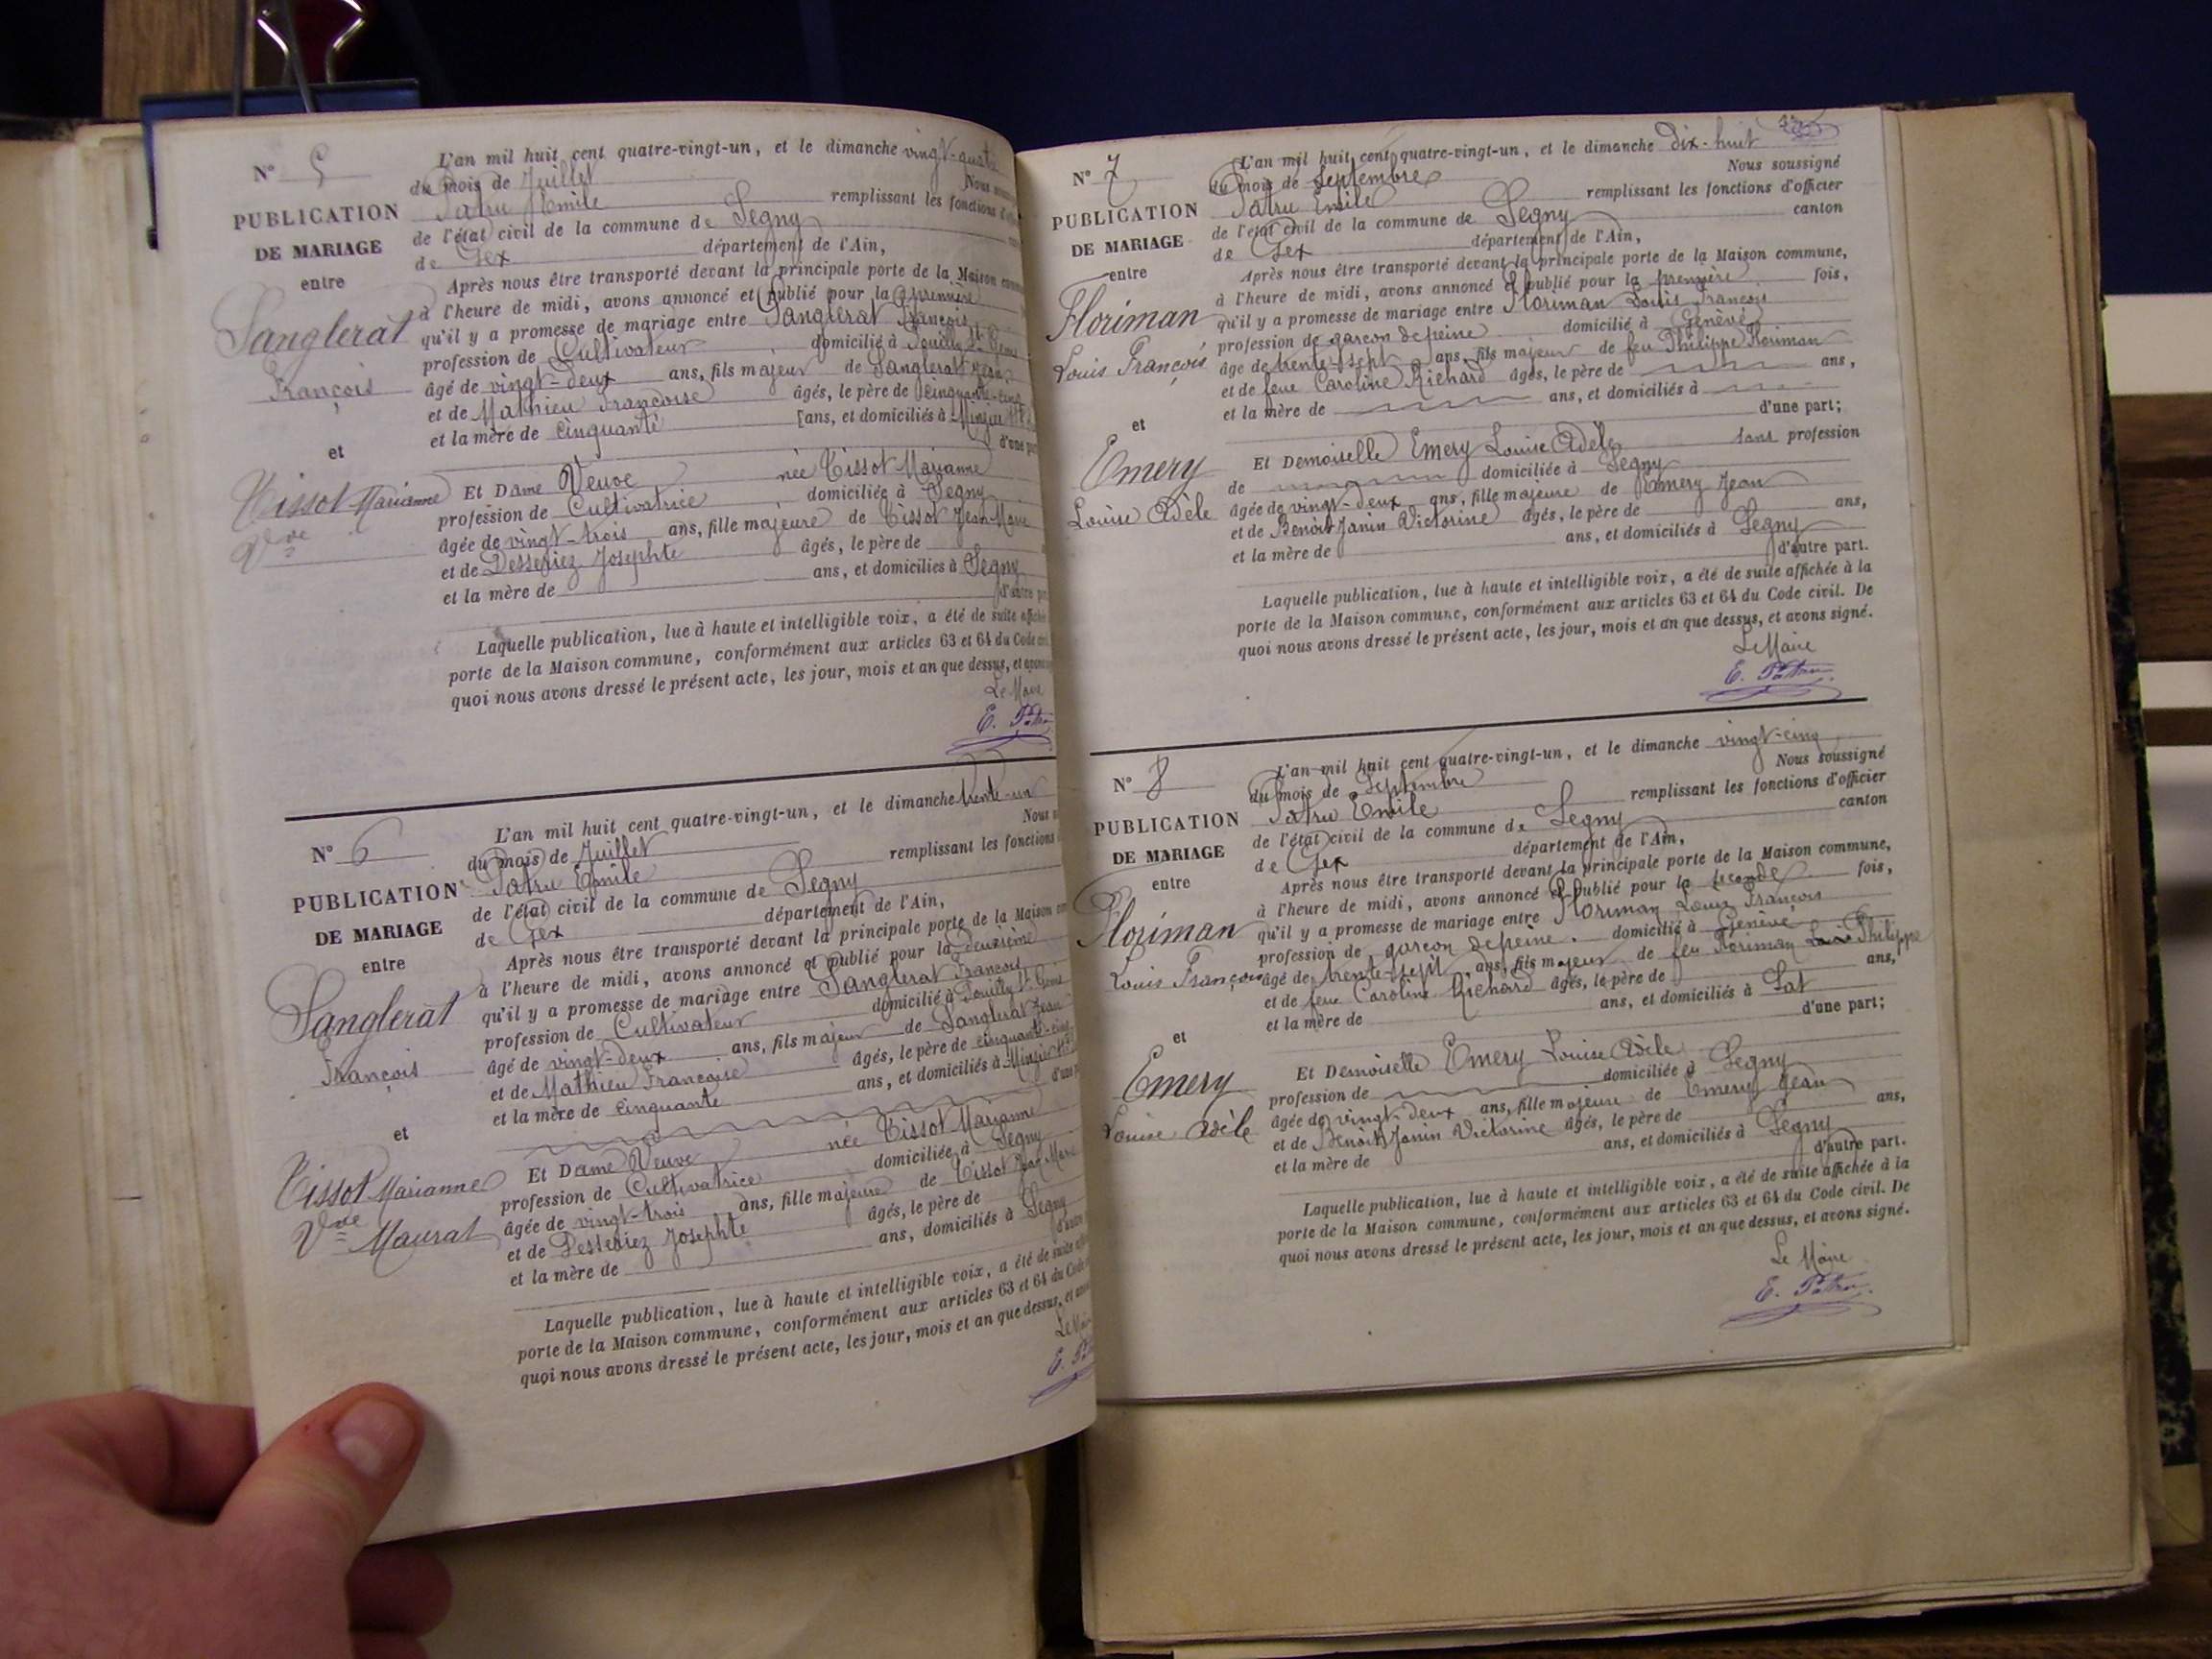 N° 5
PUBLICATION
DE MARIAGE
entre
Sanglerat
François
et
Tissot Marianne
Vve
L'an mil huit cent quatre-vingt-un, et le dimanche vingt-quatre
du mois de Juillet Nous
Patru Emile remplissant les fonctions
de l'état civil de la commune de Segny
de Gex département de l'Ain,
Après nous être transporté devant la principale porte de la Maison
à l'heure de midi, avons annoncé et publié pour la première
qu'il y a promesse de mariage entre Sanglerat François
profession de Cultivateur domicilié à Pouilly St Genis
âgé de vingt-deux ans, fils majeur de Sanglerat Jean
et de Mathieu Françoise âgés, le père de cinquante-cinq
et la mère de cinquante ans, et domiciliés à Minzier
d'une
Et Dame Veuve née Tissot Marianne
profession de Cultivatrice domiciliée à Segny
âgée de vingt-trois ans, fille majeure de Tissot Jean Marie
et de Desseriez Josephte âgés, le père de
et la mère de ans, et domiciliés à Segny
d'autre
Laquelle publication, lue à haute et intelligible voix, a été de suite
porte de la Maison commune, conformément aux articles 63 et 64 du Code
quoi nous avons dressé le présent acte, les jour, mois et an que dessus, et
Le Maire
E. Patru
N° 6
PUBLICATION
DE MARIAGE
entre
Sanglerat
François
et
Tissot Marianne
Vve Maurat
L'an mil huit cent quatre-vingt-un, et le dimanche trente-un
du mois de Juillet Nous
Patru Emile remplissant les fonctions
de l'état civil de la commune de Segny
de Gex département de l'Ain,
Après nous être transporté devant la principale porte de la Maison
à l'heure de midi, avons annoncé et publié pour la deuxième
qu'il y a promesse de mariage entre Sanglerat François
profession de Cultivateur domicilié à Pouilly St Genis
âgé de vingt-deux ans, fils majeur de Sanglerat Jean
et de Mathieu Françoise âgés, le père de cinquante-cinq
et la mère de cinquante ans, et domiciliés à Minzier
d'une
Et Dame Veuve née Tissot Marianne
profession de Cultivatrice domiciliée à Segny
âgée de vingt-trois ans, fille majeure de Tissot Jean Marie
et de Desseriez Josephte âgés, le père de
et la mère de ans, domiciliés à Segny
d'autre
Laquelle publication, lue à haute et intelligible voix, a été de suite
porte de la Maison commune, conformément aux articles 63 et 64 du Code
quoi nous avons dressé le présent acte, les jour, mois et an que dessus, et
Le Maire
E. Patru
N° 7
PUBLICATION
DE MARIAGE
entre
Floriman
Louis François
et
Emery
Louise Adèle
L'an mil huit cent quatre-vingt-un, et le dimanche dix-huit
du mois de Septembre Nous soussigné
Patru Emile remplissant les fonctions d'officier
de l'état civil de la commune de Segny canton
de Gex département de l'Ain,
Après nous être transporté devant la principale porte de la Maison commune,
à l'heure de midi, avons annoncé et publié pour la première fois,
qu'il y a promesse de mariage entre Floriman Louis François
profession de garçon de peine domicilié à Genève
âgé de trente-sept ans, fils majeur de feu Philippe Floriman
et de feue Caroline Richard âgés, le père de ans,
et la mère de ans, et domiciliés à
d'une part;
Et Demoiselle Emery Louise Adèle sans profession
de domiciliée à Segny
âgée de vingt-deux ans, fille majeure de Emery Jean
et de Benoit Janin Victorine âgés, le père de ans,
et la mère de ans, et domiciliés à Segny
d'autre part.
Laquelle publication, lue à haute et intelligible voix, a été de suite affichée à la
porte de la Maison commune, conformément aux articles 63 et 64 du Code civil. De
quoi nous avons dressé le présent acte, les jour, mois et an que dessus, et avons signé.
Le Maire
E. Patru
N° 8
PUBLICATION
DE MARIAGE
entre
Floriman
Louis François
et
Emery
Louise Adèle
L'an mil huit cent quatre-vingt-un, et le dimanche vingt-cinq
du mois de Septembre Nous soussigné
Patru Emile remplissant les fonctions d'officier
de l'état civil de la commune de Segny canton
de Gex département de l'Ain,
Après nous être transporté devant la principale porte de la Maison commune,
à l'heure de midi, avons annoncé et publié pour la seconde fois,
qu'il y a promesse de mariage entre Floriman Louis François
profession de garçon de peine domicilié à Genève
âgé de trente-sept ans, fils majeur de feu Floriman Philippe
et de feue Caroline Richard âgés, le père de ans,
et la mère de ans, et domiciliés à
d'une part;
Et Demoiselle Emery Louise Adèle
profession de domiciliée à Segny
âgée de vingt-deux ans, fille majeure de Emery Jean
et de Benoit Janin Victorine âgés, le père de ans,
et la mère de ans, et domiciliés à Segny
d'autre part.
Laquelle publication, lue à haute et intelligible voix, a été de suite affichée à la
porte de la Maison commune, conformément aux articles 63 et 64 du Code civil. De
quoi nous avons dressé le présent acte, les jour, mois et an que dessus, et avons signé.
Le Maire
E. Patru